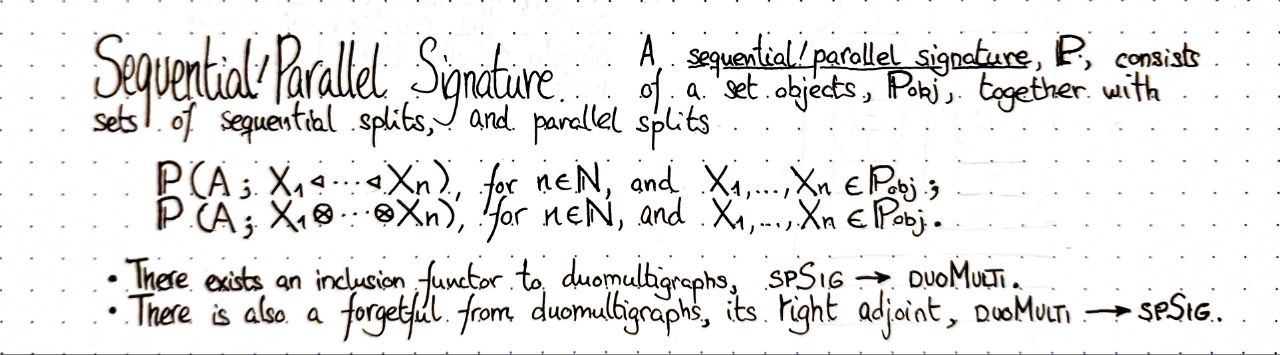 Sequential/Parallel Signature. A sequential/parallel signature, ℙ, consists
of a set objects, ℙobj, together with
sets of sequential splits, and parallel splits
ℙ(A; X₁ ◁ ··· ◁ Xn), for n∈ℕ, and X₁,...,Xn ∈ ℙobj;
ℙ(A; X₁ ⊗ ··· ⊗ Xn), for n∈ℕ, and X₁,...,Xn ∈ ℙobj.
• There exists an inclusion functor to duomultigraphs, SPSIG → DUOMULTI.
• There is also a forgetful from duomultigraphs, its right adjoint, DUOMULTI → SPSIG.